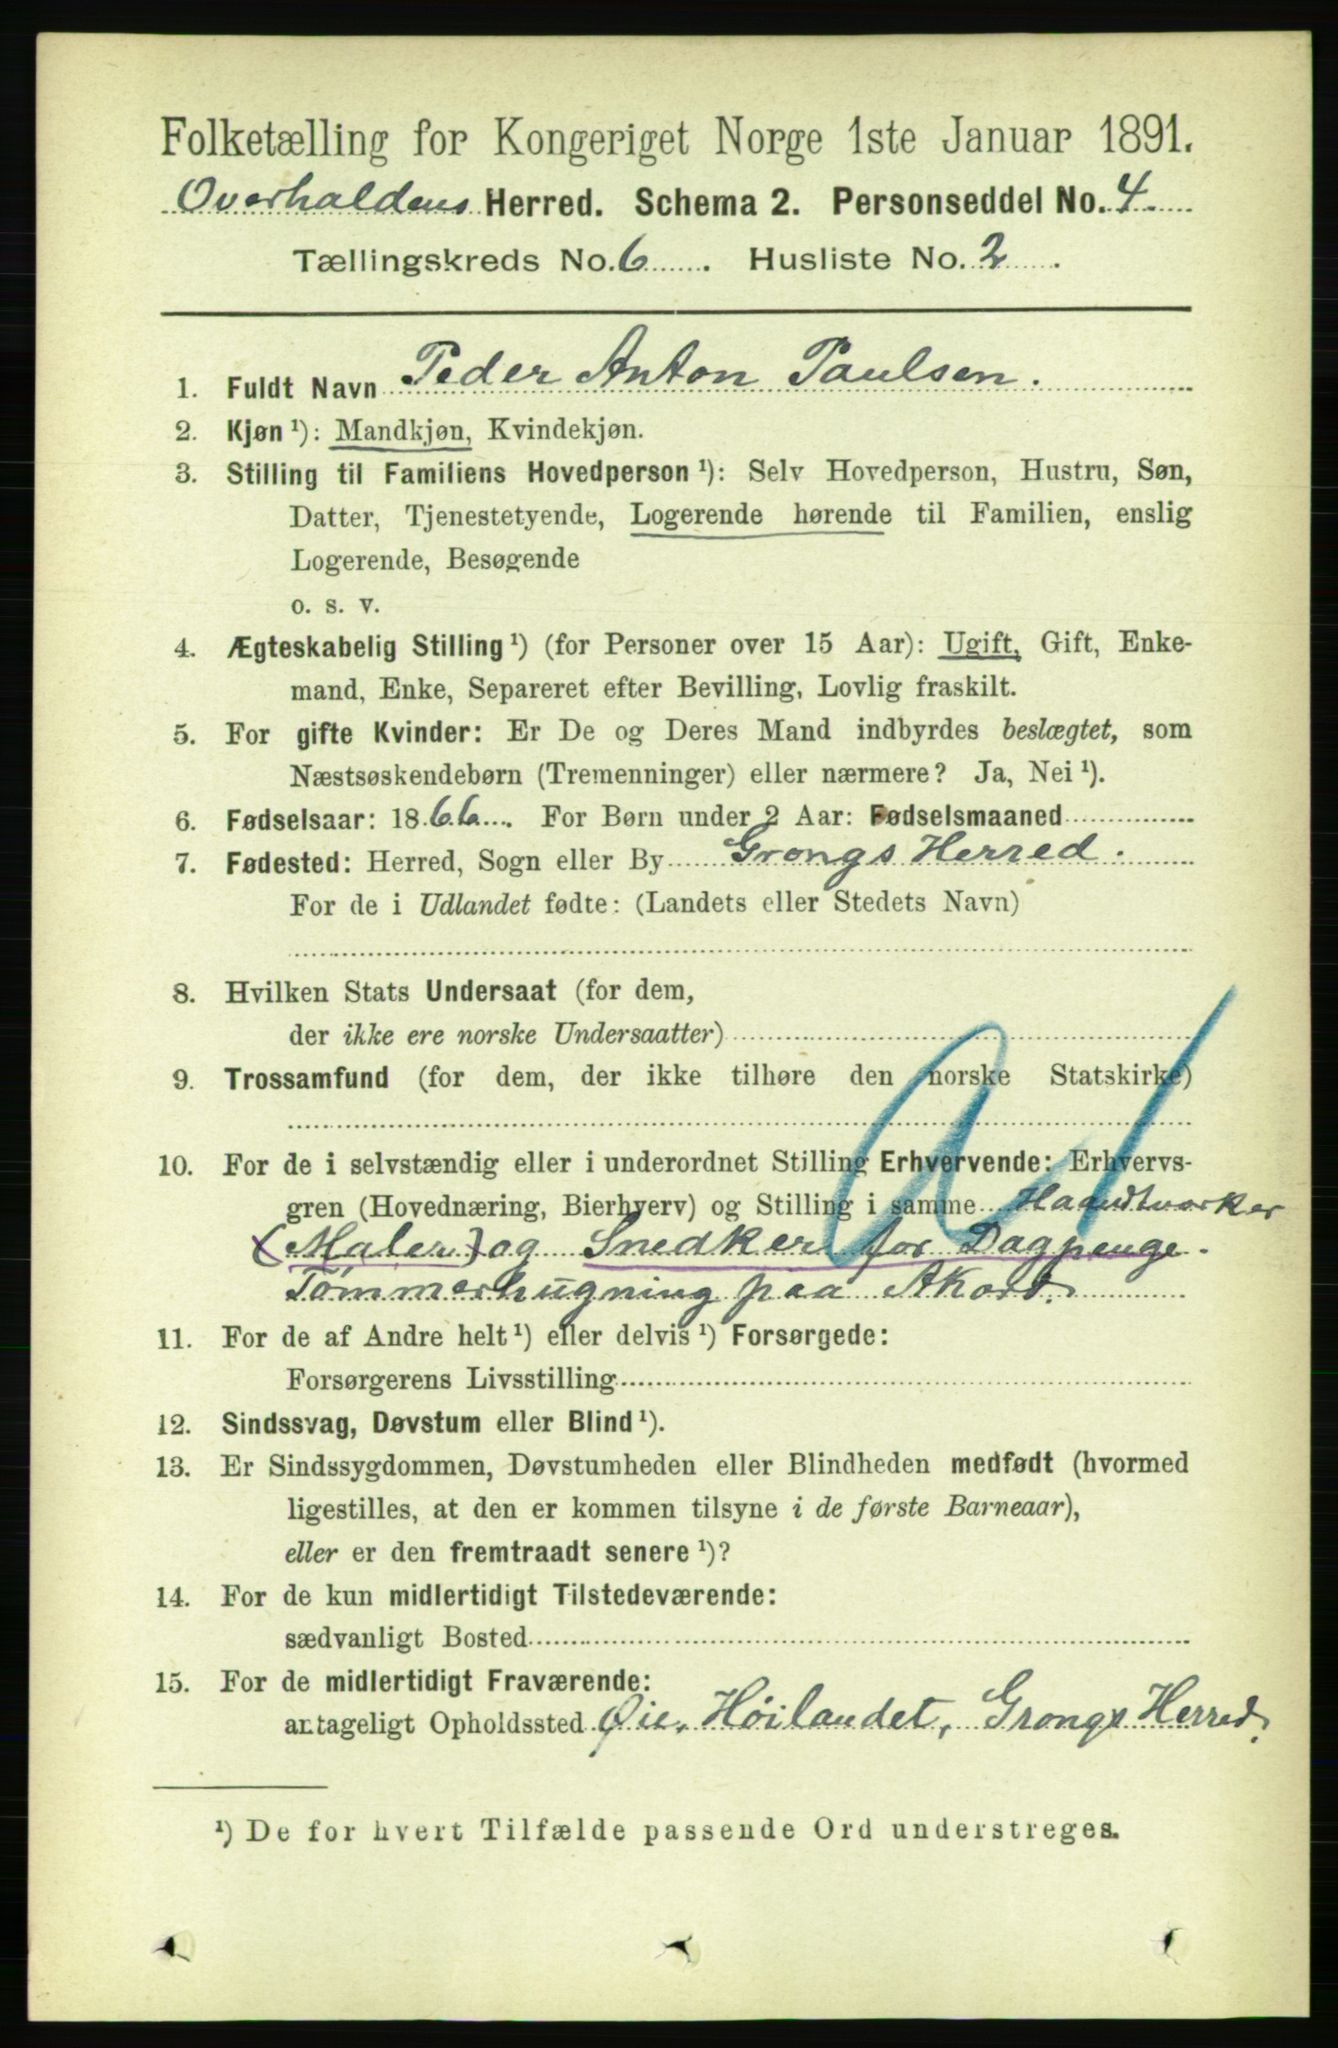 Folketælling for Kongeriget Norge 1ste Januar 1891.
Overhaldens Herred. Schema 2. Personseddel No. 4.
Tællingskreds No. 6 . Husliste No. 2 .
1. Fuldt Navn Peder Anton Paulsen.
2. Kjøn ¹): Mandkjøn, Kvindekjøn.
3. Stilling til Familiens Hovedperson ¹): Selv Hovedperson, Hustru, Søn,
Datter, Tjenestetyende, Logerende hørende til Familien, enslig
Logerende, Besøgende
o. s. v.
4. Ægteskabelig Stilling ¹) (for Personer over 15 Aar): Ugift, Gift, Enke-
mand, Enke, Separeret efter Bevilling, Lovlig fraskilt.
5. For gifte Kvinder: Er De og Deres Mand indbyrdes beslægtet, som
Næstsøskendebørn (Tremenninger) eller nærmere? Ja, Nei ¹).
6. Fødselsaar: 1866. For Børn under 2 Aar: Fødselsmaaned
7. Fødested: Herred, Sogn eller By Grongs Herred.
For de i Udlandet fødte: (Landets eller Stedets Navn)
8. Hvilken Stats Undersaat (for dem,
der ikke ere norske Undersaatter)
9. Trossamfund (for dem, der ikke tilhøre den norske Statskirke)
10. For de i selvstændig eller i underordnet Stilling Erhvervende: Erhvervs-
gren (Hovednæring, Bierhverv) og Stilling i samme Haandtværker
(Maler) og Snedker for Dagpenge.
Tømmerhugning paa Akord.
11. For de af Andre helt ¹) eller delvis ¹) Forsørgede:
Forsørgerens Livsstilling
12. Sindssvag, Døvstum eller Blind ¹).
13. Er Sindssygdommen, Døvstumheden eller Blindheden medfødt (hvormed
ligestilles, at den er kommen tilsyne i de første Barneaar),
eller er den fremtraadt senere ¹)?
14. For de kun midlertidigt Tilstedeværende:
sædvanligt Bosted
15. For de midlertidigt Fraværende:
antageligt Opholdssted Øie, Höilandet, Grongs Herred.
¹) De for hvert Tilfælde passende Ord understreges.